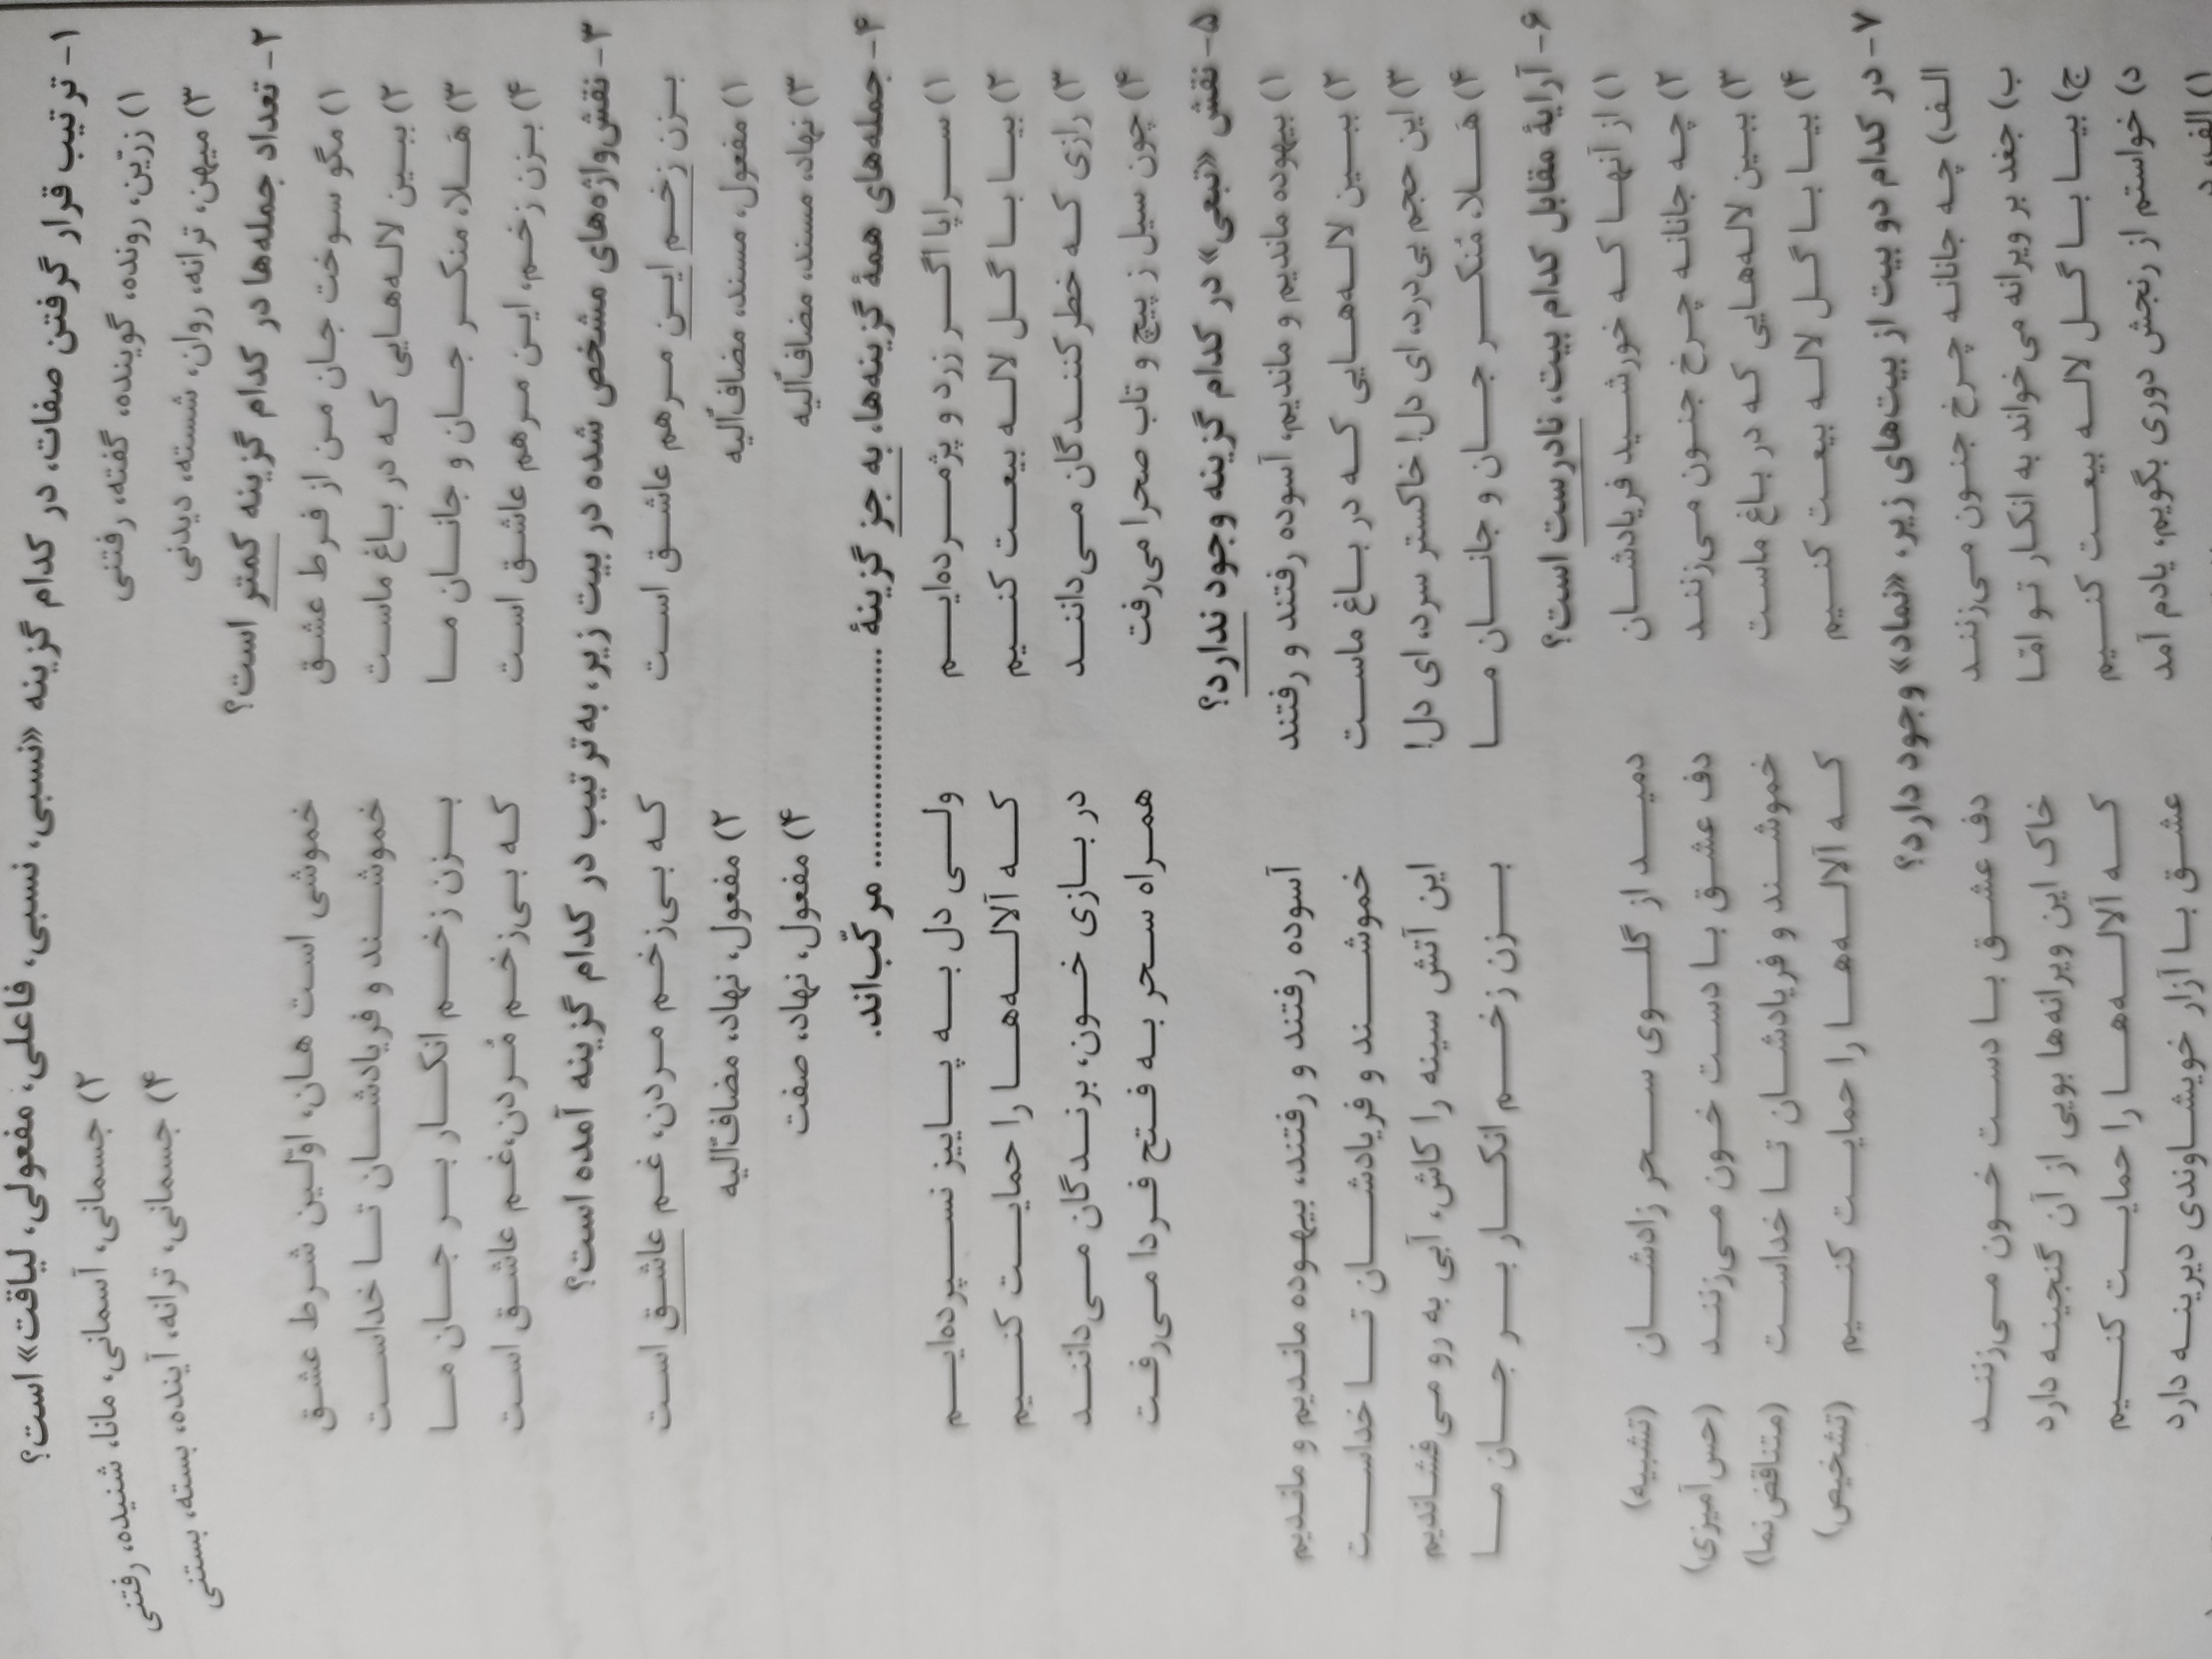 ۱- ترتیب قرار گرفتن صفات، در کدام گزینه «نسبی، نسبی، فاعلی، مفعولی، لیاقت» است؟
۱) زرّین، رونده، گوینده، گفته، رفتنی ۲) جسمانی، آسمانی، مانا، شنیده، رفتنی
۳) میهن، ترانه، روان، شسته، دیدنی ۴) جسمانی، ترانه، آینده، بسته، بستنی
۲- تعداد جمله‌ها در کدام گزینه کمتر است؟
۱) مگو سوخت جان من از فرط عشق خموشی است هان، اوّلین شرط عشق
۲) ببین لاله‌هایی که در باغ ماست خموشند و فریادشان تا خداست
۳) هَلا، منکر جان و جانان ما بزن زخم انکار بر جان ما
۴) بزن زخم، این مرهم عاشق است که بی‌زخم مُردن،غم عاشق است
۳- نقش‌واژه‌های مشخص شده در بیت زیر، به‌ترتیب در کدام گزینه آمده است؟
بزن زخم این مرهم عاشق است که بی‌زخم مردن، غم عاشق است
۱) مفعول، مسند، مضاف‌ٌالیه ۲) مفعول، نهاد، مضاف‌ٌالیه
۳) نهاد، مسند، مضاف‌ٌالیه ۴) مفعول، نهاد، صفت
۴- جمله‌های همهٔ گزینه‌ها، به جز گزینهٔ ...................... مرکّب‌اند.
۱) سراپا اگر زرد و پژمرده‌ایم ولی دل به پاییز نسپرده‌ایم
۲) بیا با گل لاله بیعت کنیم که آلاله‌ها را حمایت کنیم
۳) رازی که خطرکنندگان می‌دانند در بازی خون، برندگان می‌دانند
۴) چون سیل ز پیچ و تاب صحرا می‌رفت همراه سحر به فتح فردا می‌رفت
۵- نقش «تبعی» در کدام گزینه وجود ندارد؟
۱) بیهوده ماندیم و ماندیم، آسوده رفتند و رفتند آسوده رفتند و رفتند، بیهوده ماندیم و ماندیم
۲) ببین لاله‌هایی که در باغ ماست خموشند و فریادشان تا خداست
۳) این حجم بی‌درد، ای دل! خاکستر سرد، ای دل! این آتش سینه را کاش، آبی به رو می‌فشاندیم
۴) هَلا، مُنکر جان و جانان ما بزن زخم انکار بر جان ما
۶- آرایهٔ مقابل کدام بیت، نادرست است؟
۱) از آنها که خورشید فریادشان دمید از گلوی سحر زادشان (تشبیه)
۲) چه جانانه چرخ جنون می‌زنند دف عشق با دست خون می‌زنند (حس‌آمیزی)
۳) ببین لاله‌هایی که در باغ ماست خموشند و فریادشان تا خداست (متناقض‌نما)
۴) بیا با گل لاله بیعت کنیم که آلاله‌ها را حمایت کنیم (تشخیص)
۷- در کدام دو بیت از بیت‌های زیر، «نماد» وجود دارد؟
الف) چه جانانه چرخ جنون می‌زنند دف عشق با دست خون می‌زنند
ب) جغد بر ویرانه می‌خواند به انکار تو امّا خاک این ویرانه‌ها بویی از آن گنجینه دارد
ج) بیا با گل لاله بیعت کنیم که آلاله‌ها را حمایت کنیم
د) خواستم از رنجش دوری بگویم، یادم آمد عشق با آزار خویشاوندی دیرینه دارد
۱) الف، د